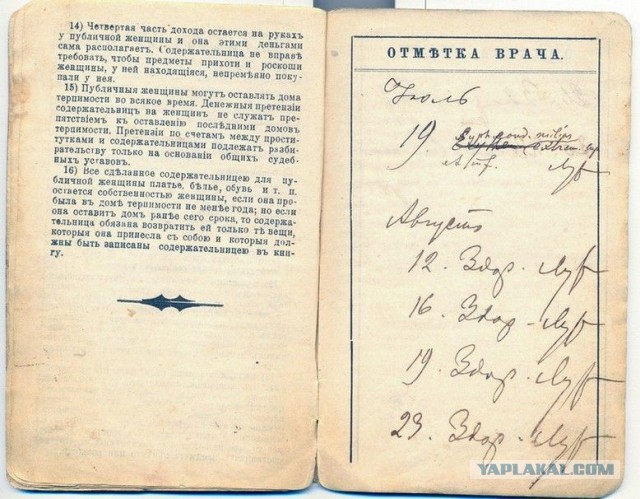 14) Четвертая часть дохода остается на рукахъ
у публичной женщины и она этими деньгами
сама располагаетъ. Содержательница не вправѣ
требовать, чтобы предметы прихоти и роскоши
женщины, у ней находящійся, непремѣнно поку-
пали у нея.
15) Публичныя женщины могутъ оставлять дома
терпимости во всякое время. Денежныя претензіи
содержательницъ на женщинъ не служатъ пре-
пятствіемъ къ оставленію послѣдними домовъ
терпимости. Претензіи по счетамъ между прости-
тутками и содержательницами подлежатъ разби-
рательству только на основаніи общихъ судеб-
ныхъ уставовъ.
16) Все сдѣланное содержательницею для пу-
бличной женщины платье, бѣлье, обувь и т. п.
остается собственностью женщины, если она про-
была въ домѣ терпимости не менѣе года; но если
она оставитъ домъ ранѣе сего срока, то содержа-
тельница обязана возвратить ей только тѣ вещи,
которыя она принесла съ собою и которыя дол-
жны быть записаны содержательницею въ кни-
гу.
ОТМѢТКА ВРАЧА.
Іюль
19
Августъ
12. Здор.
16. Здор.
19. Здор.
23. Здор.
YAPLAKAL.COM